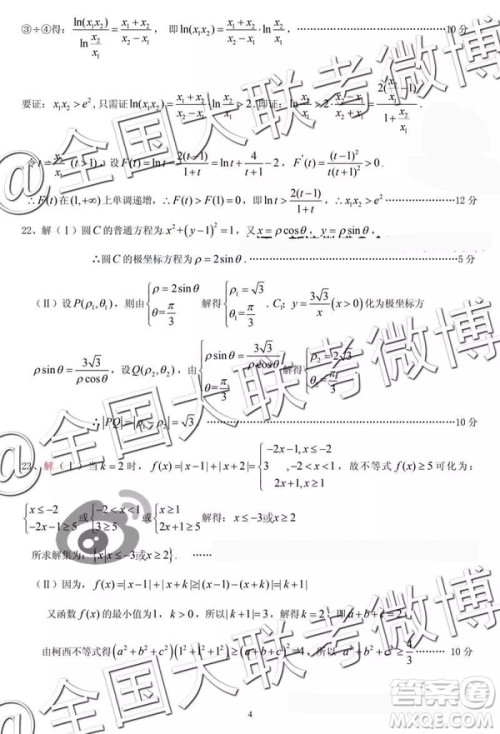 ③÷④得：ln(x₁x₂)/ln(x₂/x₁) = (x₁+x₂)/(x₂−x₁)， 即 ln(x₁x₂) = (x₁+x₂)/(x₂−x₁)·ln(x₂/x₁)， ……10 分
要证：x₁x₂>e²，只需证 ln(x₁x₂) = (x₁+x₂)/(x₂−x₁)·ln(x₂/x₁) > 2.即证：ln(x₂/x₁) > 2· = 2(x₂/x₁−1)/(1+x₂/x₁).
令 t= (t>1)；设 F(t)=ln t−2(t−1)/(1+t)=ln t+4/(t+1)−2， F′(t)=(t−1)²/t(t+1)²>0.
∴F(t)在(1,+∞)上单调递增，∴F(t)>F(1)=0，即证 ln t>2(t−1)/(1+t)，∴x₁x₂>e² ……12 分
22、解（Ⅰ）圆C的普通方程为x²+(y−1)²=1，又x=ρcosθ，y=ρsinθ，
∴圆C的极坐标方程为ρ=2sinθ ……5 分
（Ⅱ）设P(ρ₁,θ₁)，则由{ρ=2sinθ θ=π/3 解得{ρ₁=√3 θ₁=π/3. C₁：y=3√3/x(x>0)化为极坐标方
ρsinθ=3√3/ρcosθ，设Q(ρ₂,θ₂)，由{ρsinθ=3√3/ρcosθ θ=π/3 解得{ρ₂=2√3 θ₂=π/3
∴|PQ|=|ρ₁−ρ₂|=√3 ……10 分
23、解（Ⅰ）当k=2时，f(x)=|x−1|+|x+2|={−2x−1,x≤−2 3 ,−2<x<1 2x+1,x≥1，故不等式f(x)≥5可化为：
{x≤−2 −2x−1≥5或{−2<x<1 3≥5或{x≥1 2x+1≥5解得：x≤−3或x≥2
所求解集为：{x|x≤−3或x≥2}. ……
（Ⅱ）因为，f(x)=|x−1|+|x+k|≥|(x−1)−(x+k)|=|k+1|.
又函数f(x)的最小值为1，k>0，所以|k+1|=3，解得k=2，即a+b+c=2.
由柯西不等式得(a²+b²+c²)(1²+1²+1²)≥(a+b+c)²=4.所以a²+b²+c²≥4/3 …… 10 分
4
@全国大联考微博
@全国大联考微博
@全国大联考微博
答案圈